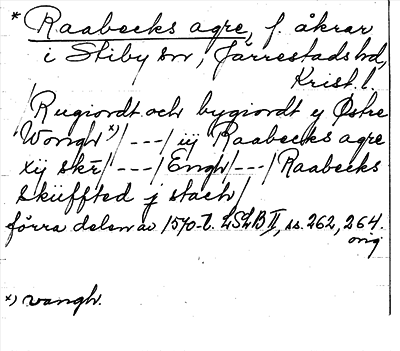 * Raabecks agre, f. åkrar
i Stiby sn, Järrestads hd,
Krist. l.
/Rugiordt och bygiordt y Østre
Wongh x)/---/ iij Raabecks agre
xij skr̄/---/Engh/---/Raabecks
Sküffted j stach/
förra delen av 1570-t. LSLB II, ss. 262, 264.
orig
x) vangh.